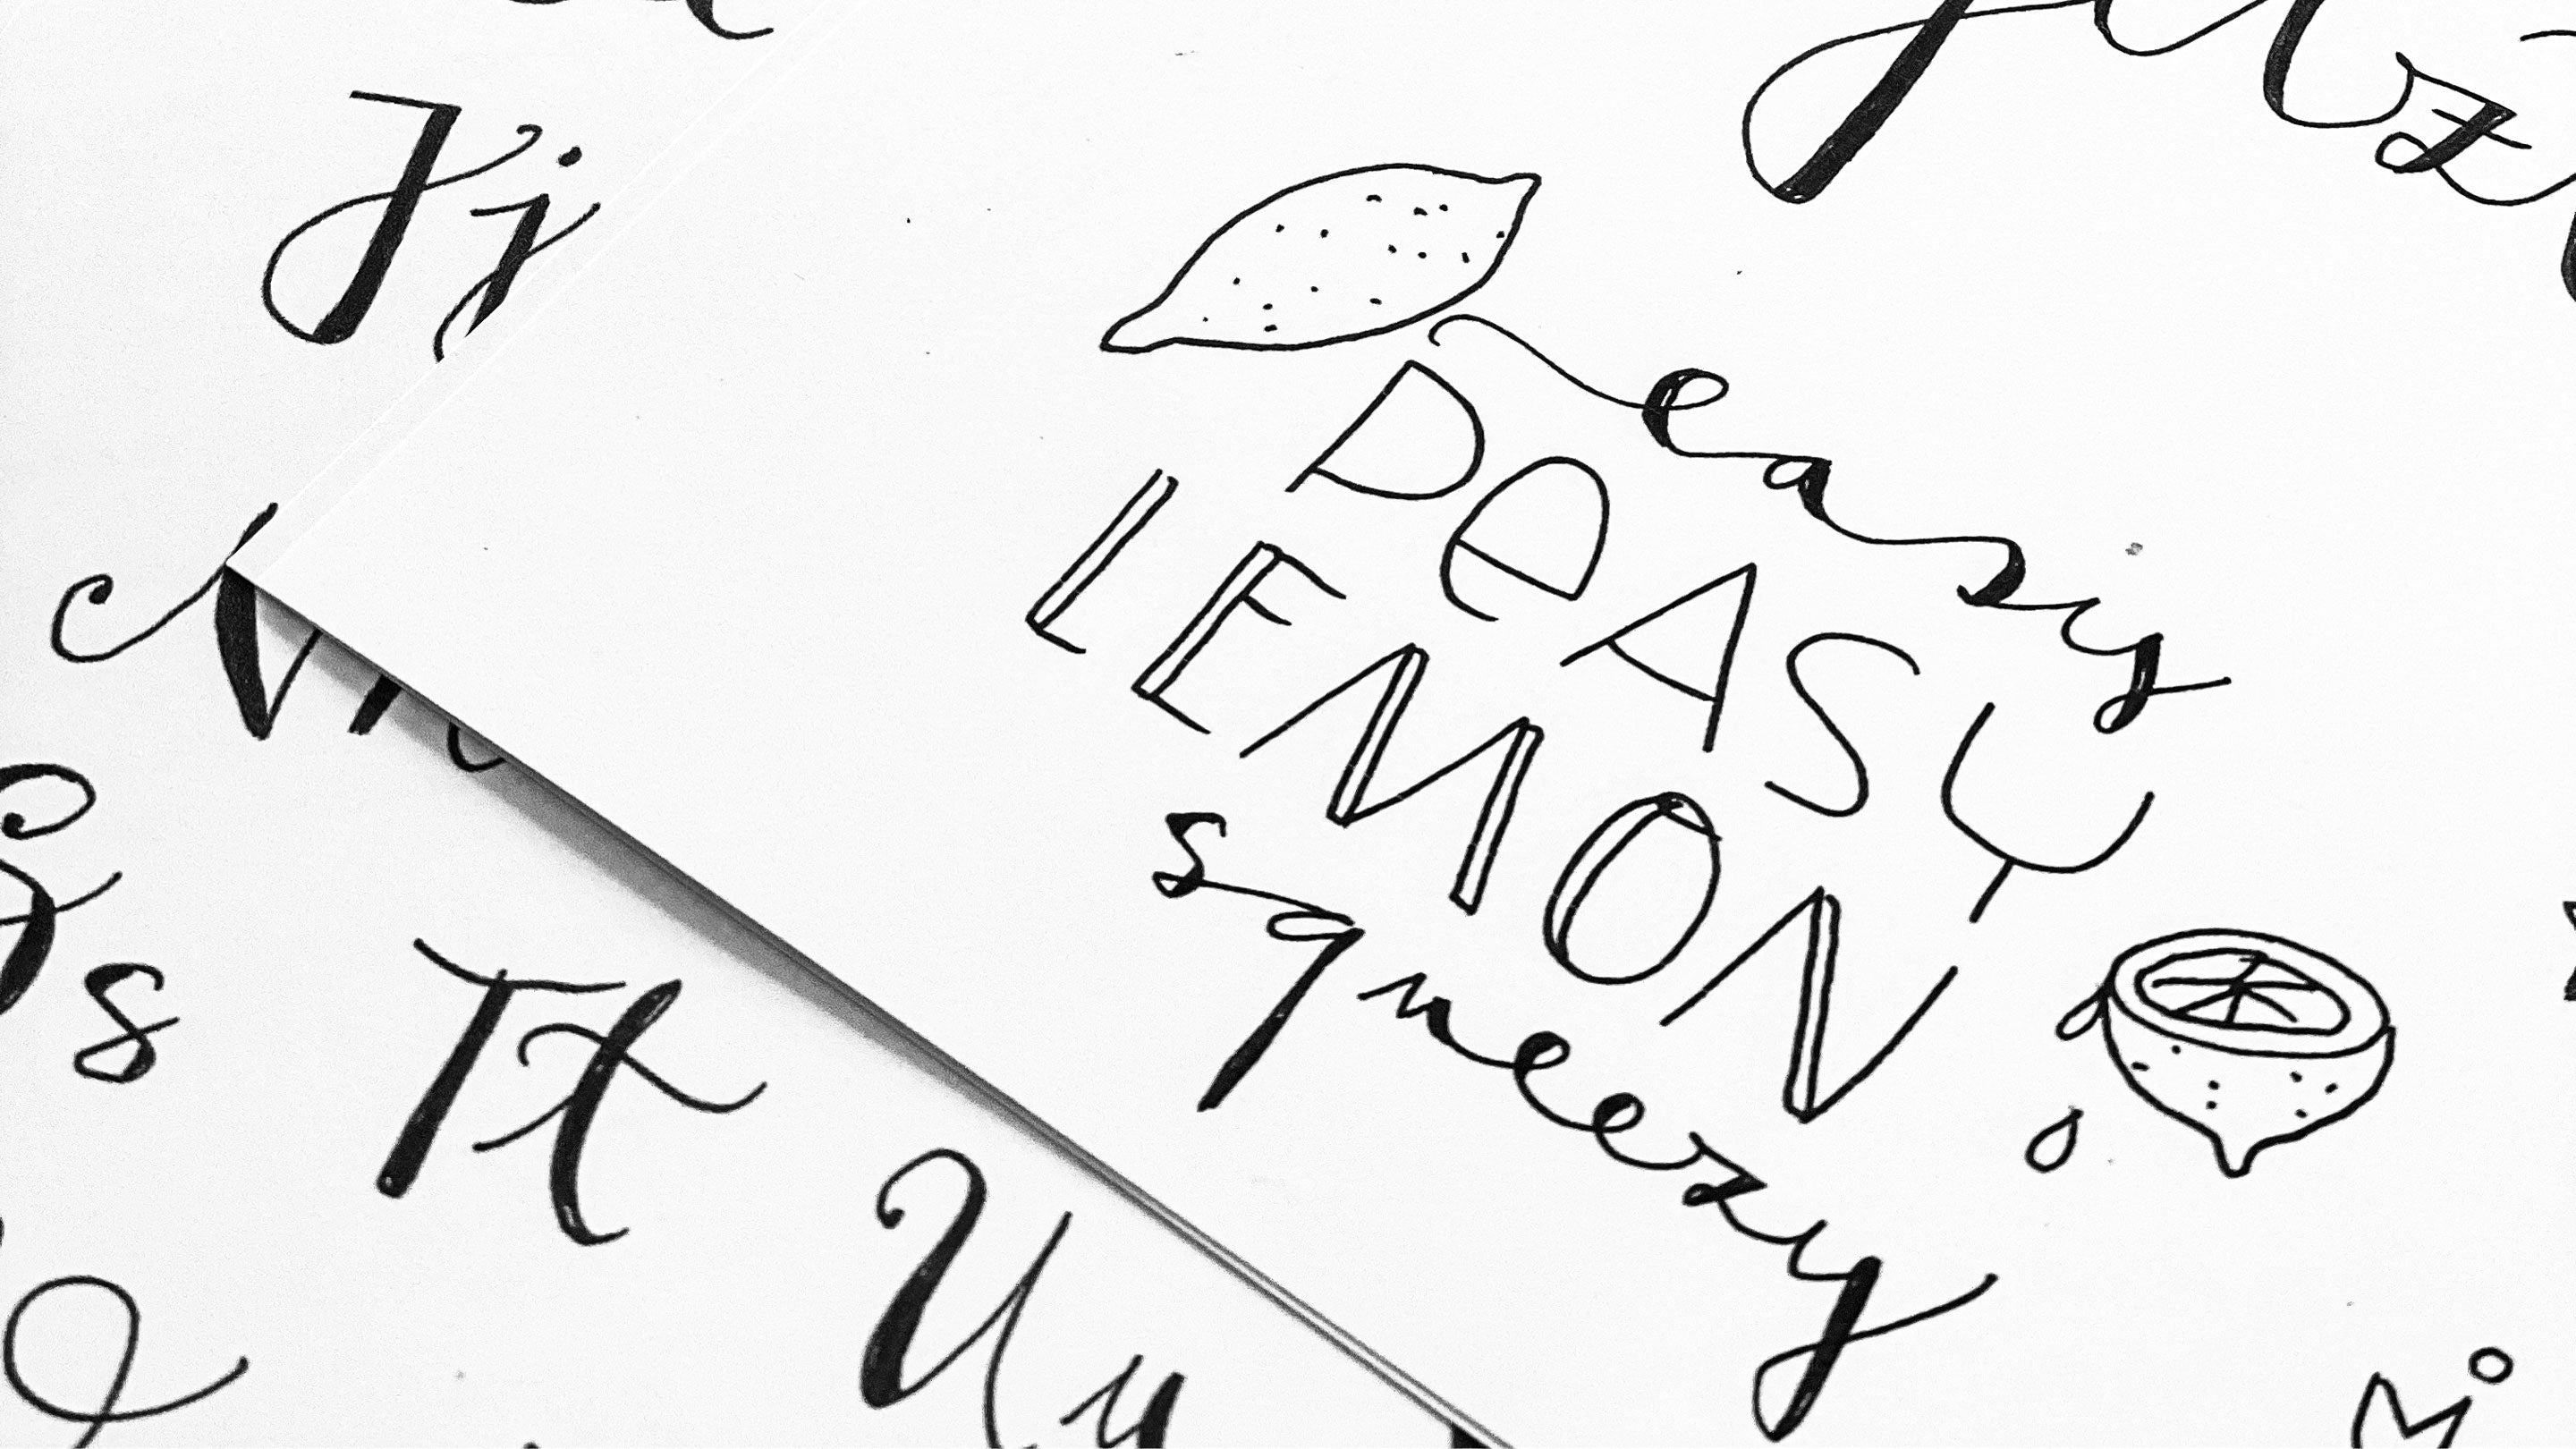 Jj
easy
PeASY
LEMON
squeezy
Ss
Tt
Uu